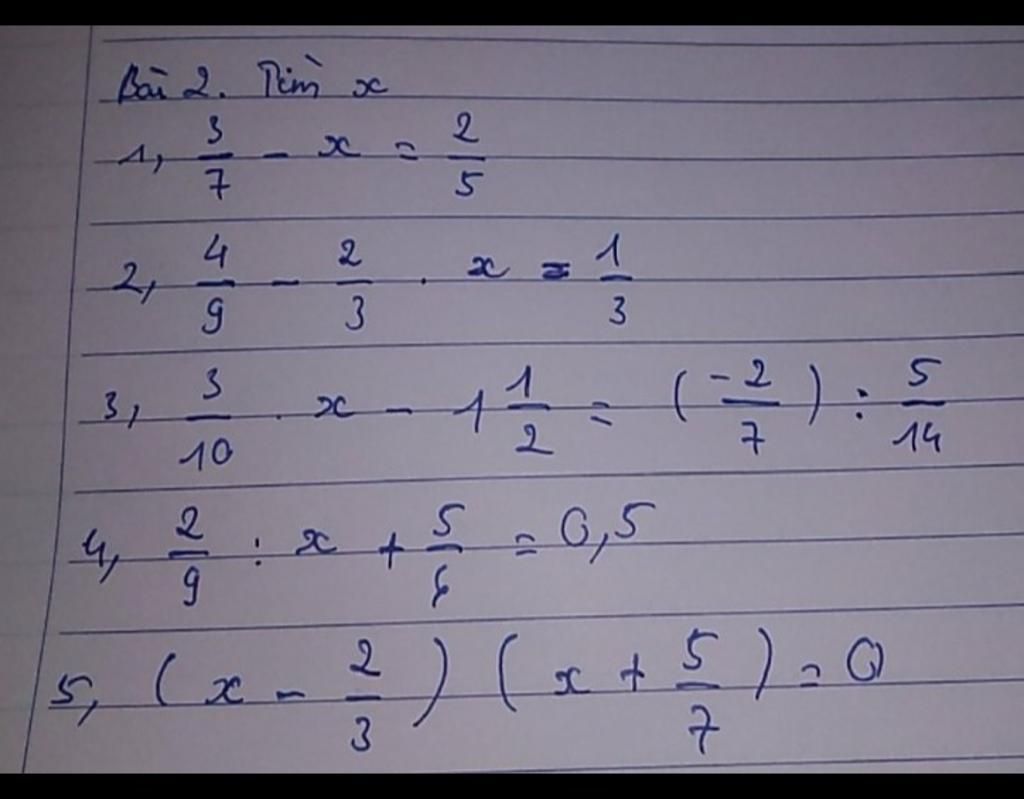 Bài 2. Tìm x
1, 3/7 - x = 2/5
2, 4/9 - 2/3 . x = 1/3
3, 3/10 . x - 1 1/2 = (-2/7) : 5/14
4, 2/9 : x + 5/6 = 0,5
5, (x - 2/3) (x + 5/7) = 0